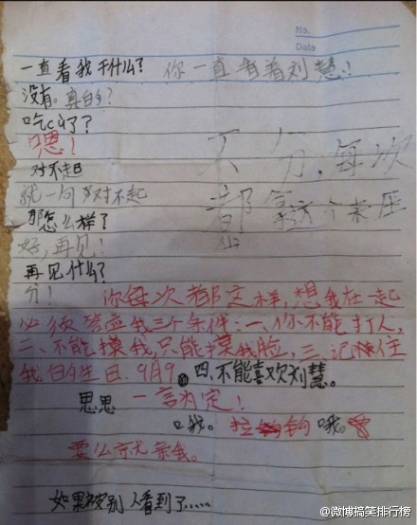 No.
Date
一直看我干什么? 你一直看着刘慧!
没有。真的?
吃cù了?
嗯!
对不起
就一句对不起
那怎么样了?
不分,每次
好,再见!
都拿这个来压
再见什么?
分!
你每次都这样,想我在一起
必须答应我三个条件:一、你不能打人,
二、不能摸我,只能摸我脸,三、记住
我的生日.9月9。四、不能喜欢刘慧。
思思 一言为定!
哦。拉钩哦。
要么亲我。
如果被别人看到了.....
@微博搞笑排行榜